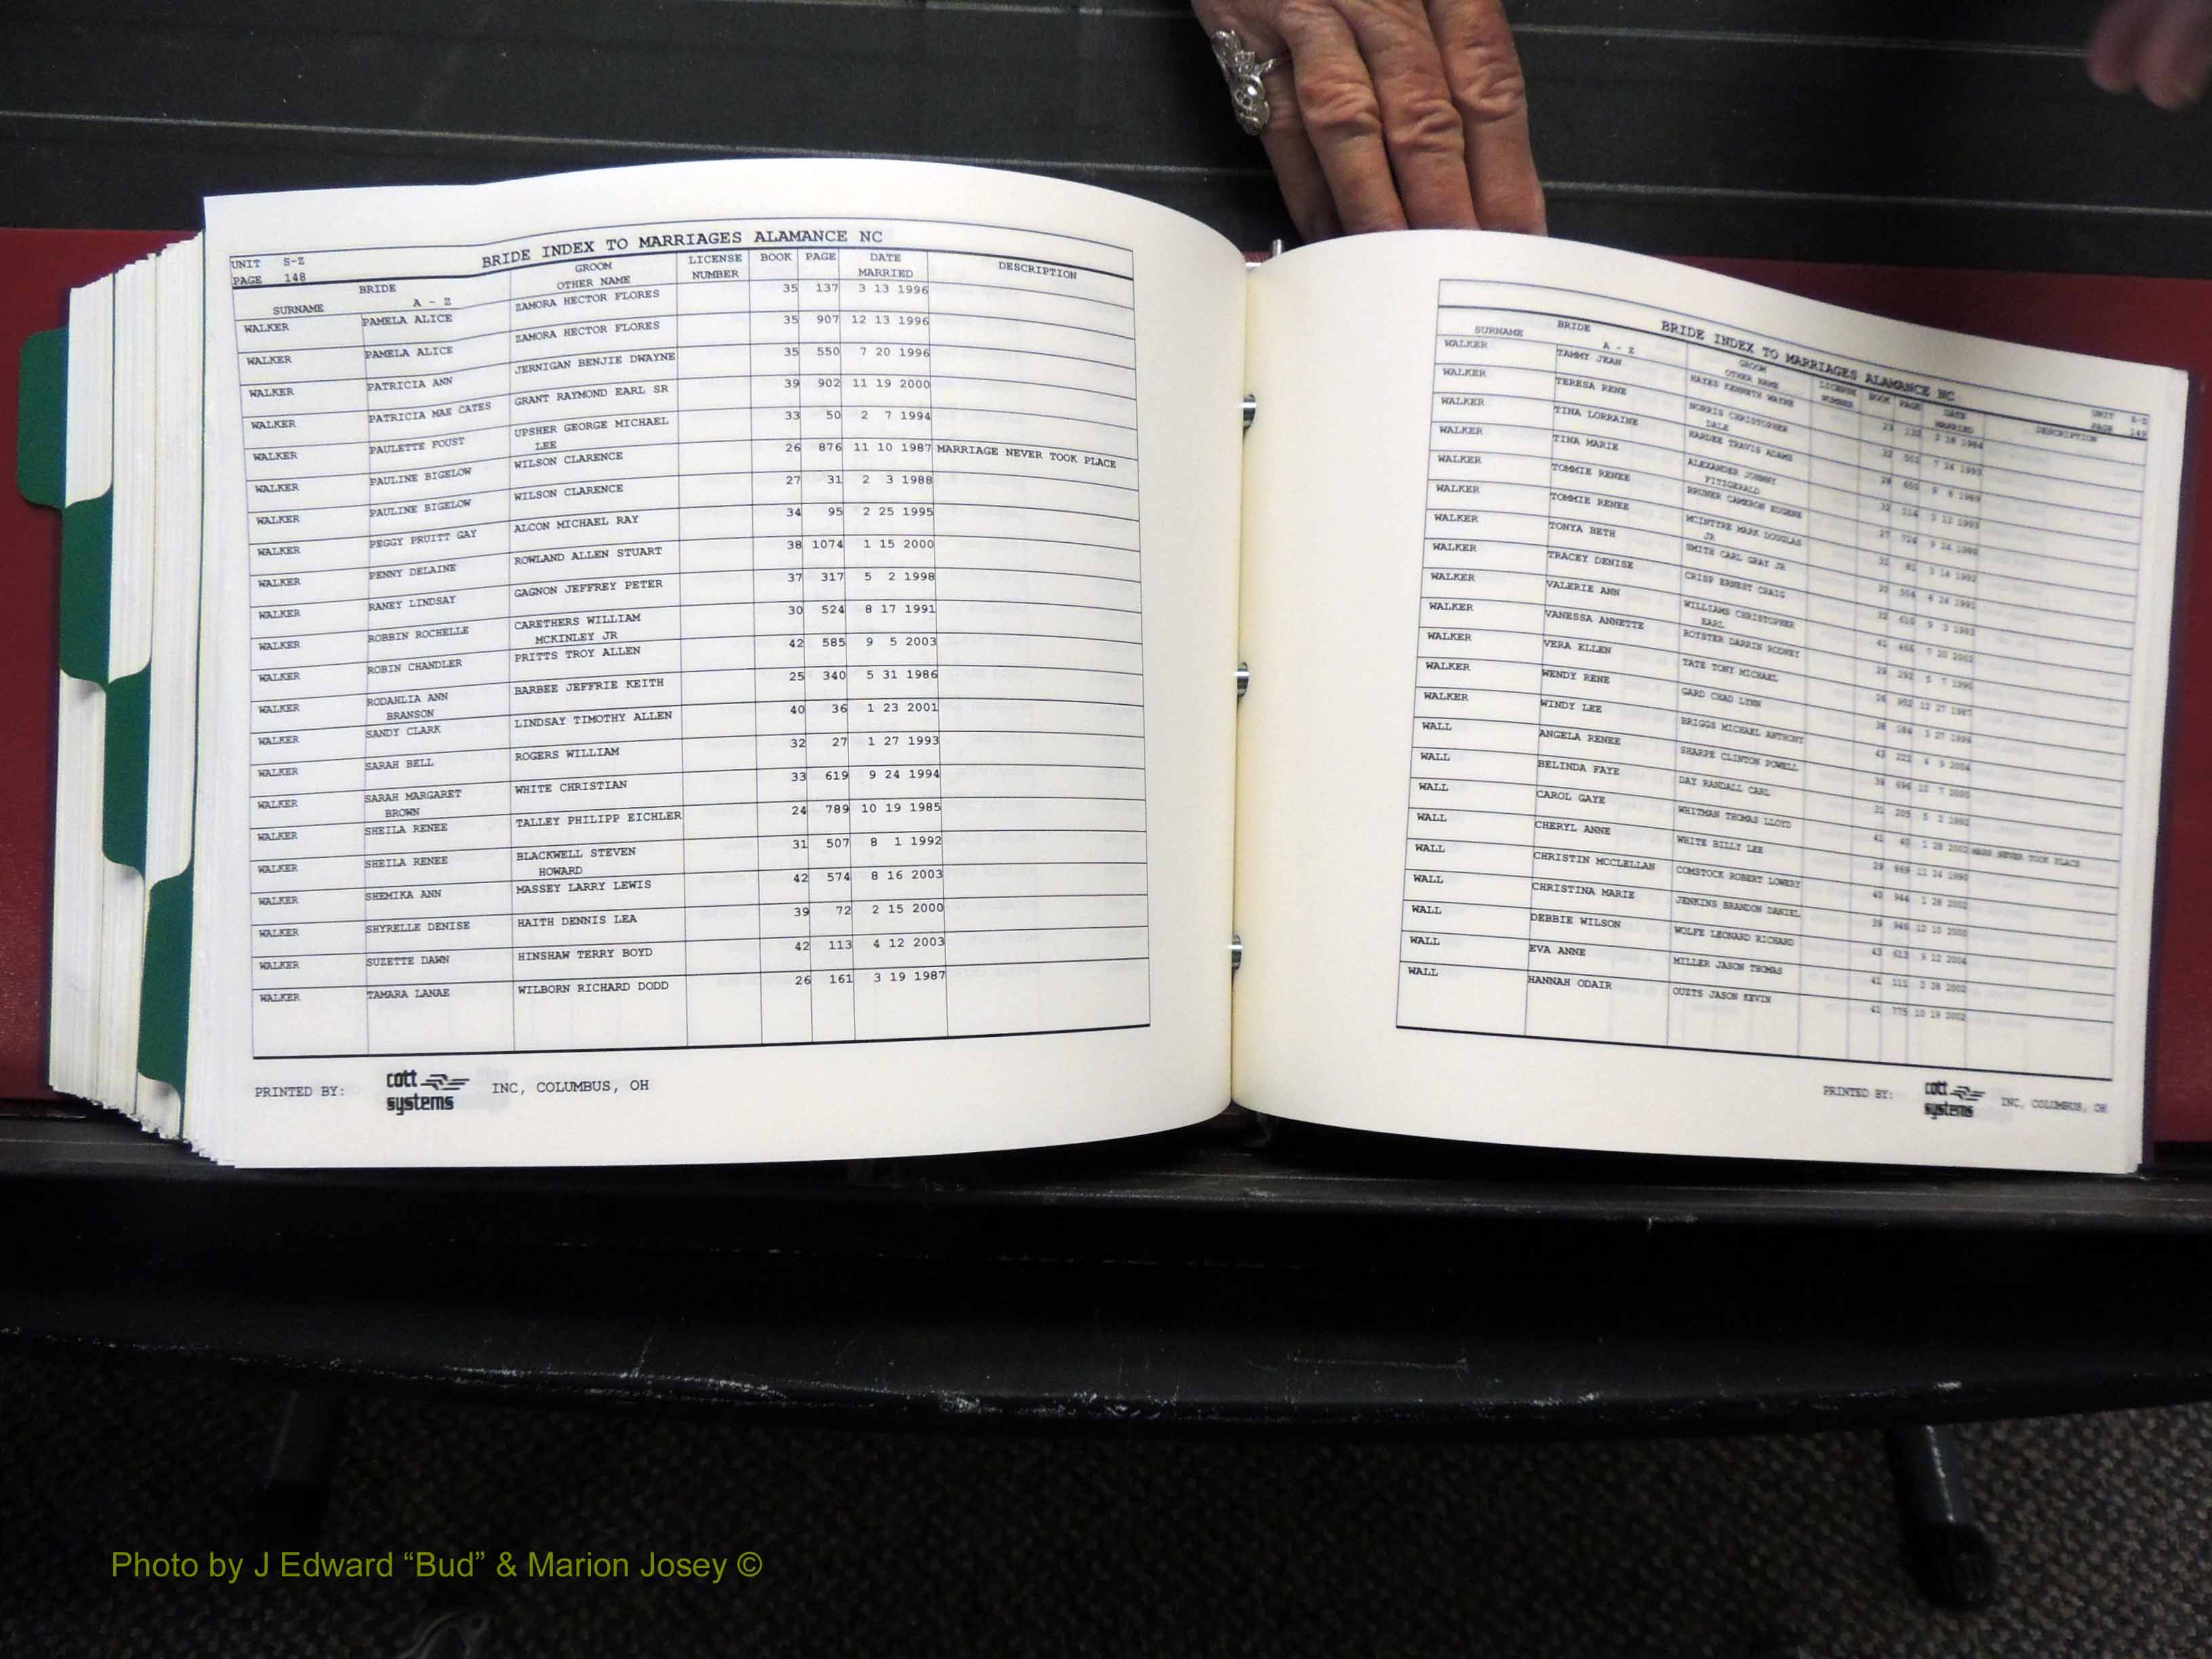 UNIT S-Z
PAGE 148
BRIDE INDEX TO MARRIAGES ALAMANCE NC
BRIDE GROOM LICENSE BOOK PAGE DATE DESCRIPTION
SURNAME A - Z OTHER NAME NUMBER MARRIED
WALKER PAMELA ALICE ZAMORA HECTOR FLORES 35 137 3 13 1996
WALKER PAMELA ALICE ZAMORA HECTOR FLORES 35 907 12 13 1996
WALKER PATRICIA ANN JERNIGAN BENJIE DWAYNE 35 550 7 20 1996
WALKER PATRICIA MAE CATES GRANT RAYMOND EARL SR 39 902 11 19 2000
WALKER PAULETTE FOUST UPSHER GEORGE MICHAEL 33 50 2 7 1994
LEE
WALKER PAULINE BIGELOW WILSON CLARENCE 26 876 11 10 1987 MARRIAGE NEVER TOOK PLACE
WALKER PAULINE BIGELOW WILSON CLARENCE 27 31 2 3 1988
WALKER PEGGY PRUITT GAY ALCON MICHAEL RAY 34 95 2 25 1995
WALKER PENNY DELAINE ROWLAND ALLEN STUART 38 1074 1 15 2000
WALKER RANEY LINDSAY GAGNON JEFFREY PETER 37 317 5 2 1998
WALKER ROBBIN ROCHELLE CARETHERS WILLIAM 30 524 8 17 1991
MCKINLEY JR
WALKER ROBIN CHANDLER PRITTS TROY ALLEN 42 585 9 5 2003
WALKER RODAHLIA ANN BARBEE JEFFRIE KEITH 25 340 5 31 1986
BRANSON
WALKER SANDY CLARK LINDSAY TIMOTHY ALLEN 40 36 1 23 2001
WALKER SARAH BELL ROGERS WILLIAM 32 27 1 27 1993
WALKER SARAH MARGARET WHITE CHRISTIAN 33 619 9 24 1994
BROWN
WALKER SHEILA RENEE TALLEY PHILIPP EICHLER 24 789 10 19 1985
WALKER SHEILA RENEE BLACKWELL STEVEN 31 507 8 1 1992
HOWARD
WALKER SHEMIKA ANN MASSEY LARRY LEWIS 42 574 8 16 2003
WALKER SHYRELLE DENISE HAITH DENNIS LEA 39 72 2 15 2000
WALKER SUZETTE DAWN HINSHAW TERRY BOYD 42 113 4 12 2003
WALKER TAMARA LANAE WILBORN RICHARD DODD 26 161 3 19 1987
PRINTED BY: cott systems INC, COLUMBUS, OH
BRIDE INDEX TO MARRIAGES ALAMANCE NC
UNIT S-Z
PAGE 149
BRIDE GROOM LICENSE BOOK PAGE DATE DESCRIPTION
SURNAME A - Z OTHER NAME NUMBER MARRIED
WALKER TAMMY JEAN HAYES KENNETH WAYNE
WALKER TERESA RENE NORRIS CHRISTOPHER
DALE
WALKER TINA LORRAINE HARDEE TRAVIS ADAMS
WALKER TINA MARIE ALEXANDER JOHNNY
FITZGERALD
WALKER TOMMIE RENEE BRUNER CAMERON EUGENE
WALKER TOMMIE RENEE MCINTYRE MARK DOUGLAS
JR
WALKER TONYA BETH SMITH CARL GRAY JR
WALKER TRACEY DENISE CRISP ERNEST CRAIG
WALKER VALERIE ANN WILLIAMS CHRISTOPHER
EARL
WALKER VANESSA ANNETTE ROYSTER DARRIN RODNEY
WALKER VERA ELLEN TATE TONY MICHAEL
WALKER WENDY RENE GARD CHAD LYNN
WALKER WINDY LEE BRIGGS MICHAEL ANTHONY
WALL ANGELA RENEE SHARPE CLINTON POWELL
WALL BELINDA FAYE DAY RANDALL CARL
WALL CAROL GAYE WHITMAN THOMAS LLOYD NEVER TOOK PLACE
WALL CHERYL ANNE WHITE BILLY LEE
WALL CHRISTIN MCCLELLAN COMSTOCK ROBERT LOWERY
WALL CHRISTINA MARIE JENKINS BRANDON DANIEL
WALL DEBBIE WILSON WOLFE LEONARD RICHARD
WALL EVA ANNE MILLER JASON THOMAS
WALL HANNAH ODAIR OUZTS JASON KEVIN
PRINTED BY: cott systems INC, COLUMBUS, OH
Photo by J Edward “Bud” & Marion Josey ©